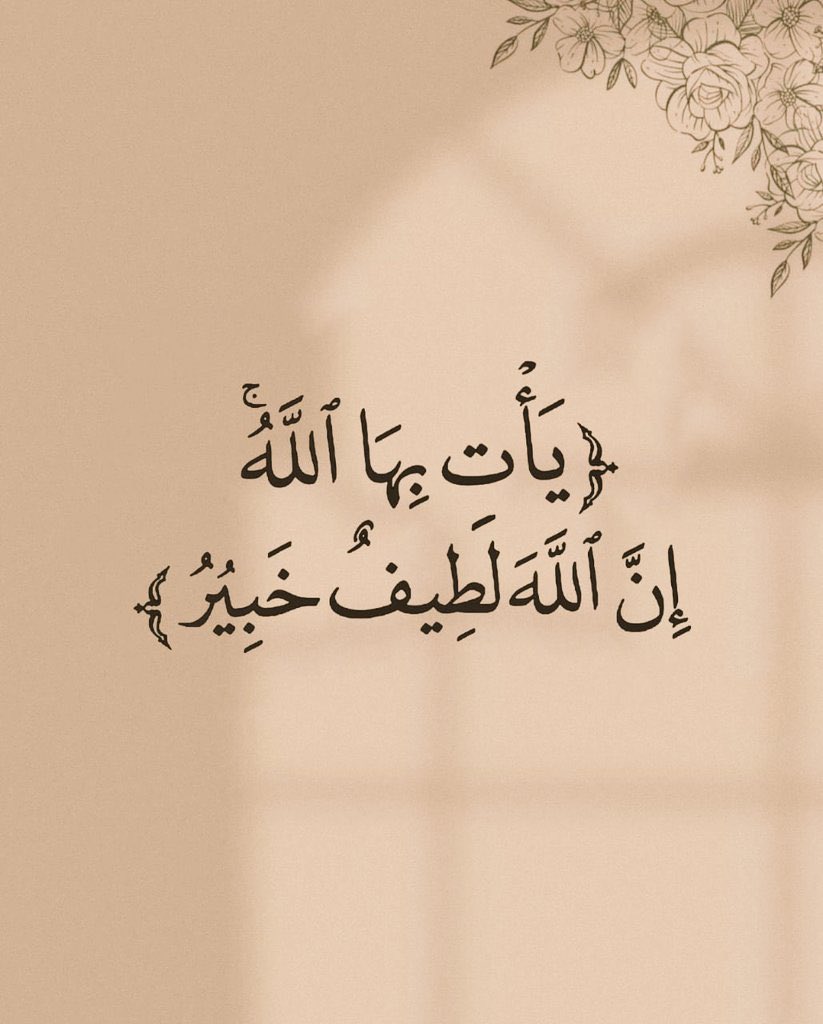 ﴿يَأْت بِهَا ٱللَّهُۚ
إِنَّ ٱللَّهَ لَطِيفٌ خَبِيُرُ﴾